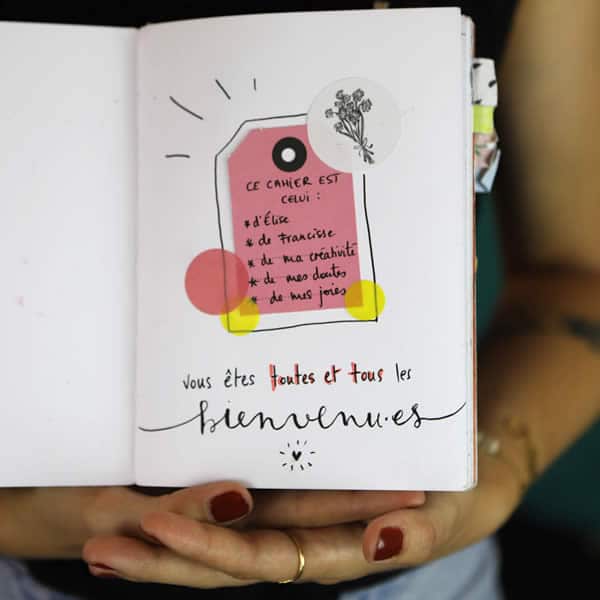 CE CAHIER EST
CELUI :
* d'Élise
* de Francisse
* de ma créativité
* de mes doutes
* de mes joies
vous êtes toutes et tous les
bienvenu·es